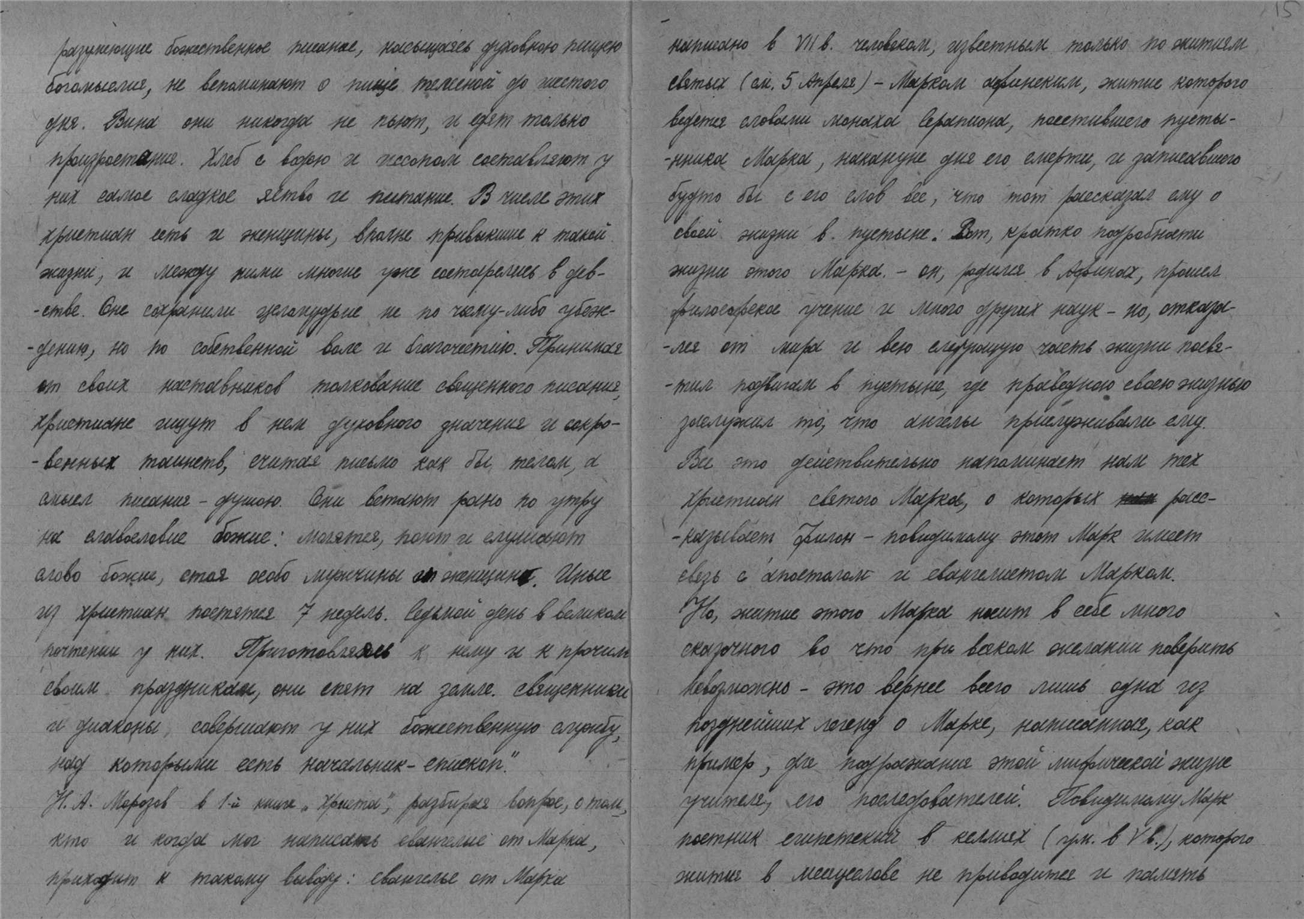 разумеющие божественное писание, насыщаясь духовною пищею
богомыслия, не вспоминают о пище телесной до шестого
дня. Вина они никогда не пьют, и едят только
произростание. Хлеб с водою и иссопом составляют у
них самое сладкое яство и питание. В числе этих
христиан есть и женщины, вполне привыкшие к такой
жизни, и между ними многие уже состарелись в дев-
-стве. Оне сохранили целомудрие не по чьему-либо убеж-
-дению, но по собственной воле и благочестию. Принимая
от своих наставников толкование священного писания,
христиане ищут в нем духовного значения и сокро-
-венных таинств, считая письмо как бы телом, а
смысл писания - душою. Они встают рано по утру
на славословие божие: молятся, поют и слушают
слово божие, стоя особо мужчины от женщин. Иные
из христиан постятся 7 недель. Седьмой день в великом
почтении у них. Приготовляясь к нему и к прочим
своим праздникам, они спят на земле. Священники
и диаконы, совершают у них божественную службу,
над которыми есть начальник - епископ."
Н. А. Морозов в 1-й книге „Христа", разбирая вопрос, о том,
кто и когда мог написать евангелие от Марка,
приходит к такому выводу: евангелье от Марка
15
написано в VII в. человеком, известным только по житиям
святых (см. 5 Апреля) - Марком афинским, житие которого
ведется словами монаха Серапиона, посетившего пусты-
-нника Марка, накануне дня его смерти, и записавшего
будто бы с его слов все, что тот рассказал ему о
своей жизни в пустыне. Вот, кратко подробности
жизни этого Марка. - он, родился в Афинах, прошел
философское учение и много других наук - но, отказа-
-лся от мира и всю следующую часть жизни посвя-
-тил подвигам в пустыне, где праведною своею жизнью
заслужил то, что ангелы прислуживали ему.
Все это действительно напоминает нам тех
христиан святого Марка, о которых расс-
-казывает Филон - повидимому этот Марк имеет
связь с апостолом и евангелистом Марком.
Но, житие этого Марка носит в себе много
сказочного во что при всяком желании поверить
невозможно - это вернее всего лишь одна из
позднейших легенд о Марке, написанная, как
пример, для подражания этой мифической жизни
учителя, его последователей. Повидимому Марк
постник египетский в келлиях (ум. в V в.), которого
житья в месяцеслове не приводится и память